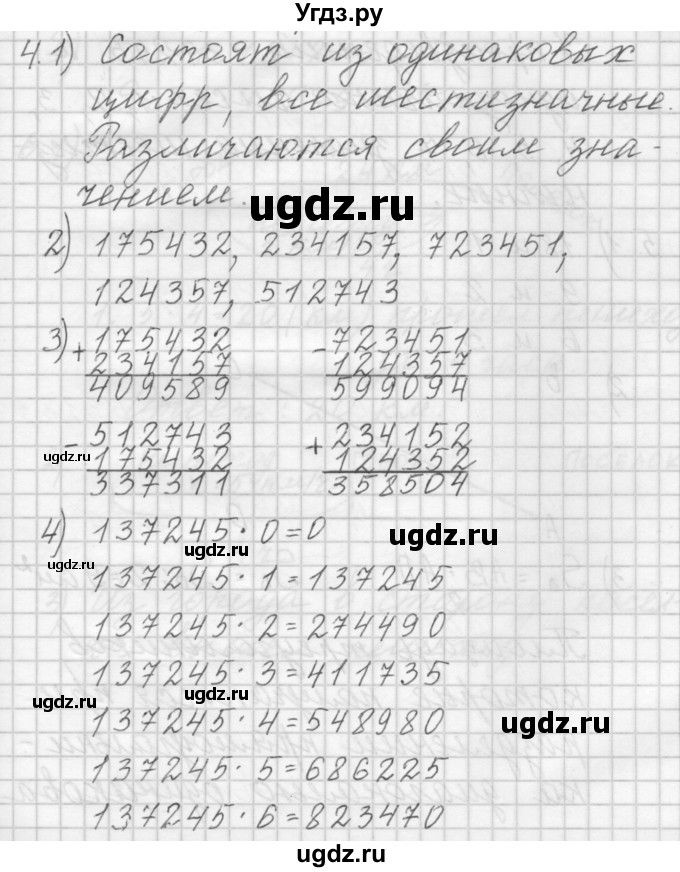 Угдз.ру
4.1) Состоят из одинаковых
цифр, все шестизначные.
Различаются своим зна-
чением.
ugdz.ru
2) 175432, 234157, 723451,
124357, 512743
3) +175432
234157
409589
-723451
124357
599094
-512743
175432
337311
+234152
124352
358504
ugdz.ru
4) 137245·0=0
ugdz.ru
ugdz.ru
ugdz.ru
137245·1=137245
137245·2=274490
137245·3=411735
ugdz.ru
ugdz.ru
137245·4=548980
ugdz.ru
137245·5=686225
137245·6=823470
ugdz.ru